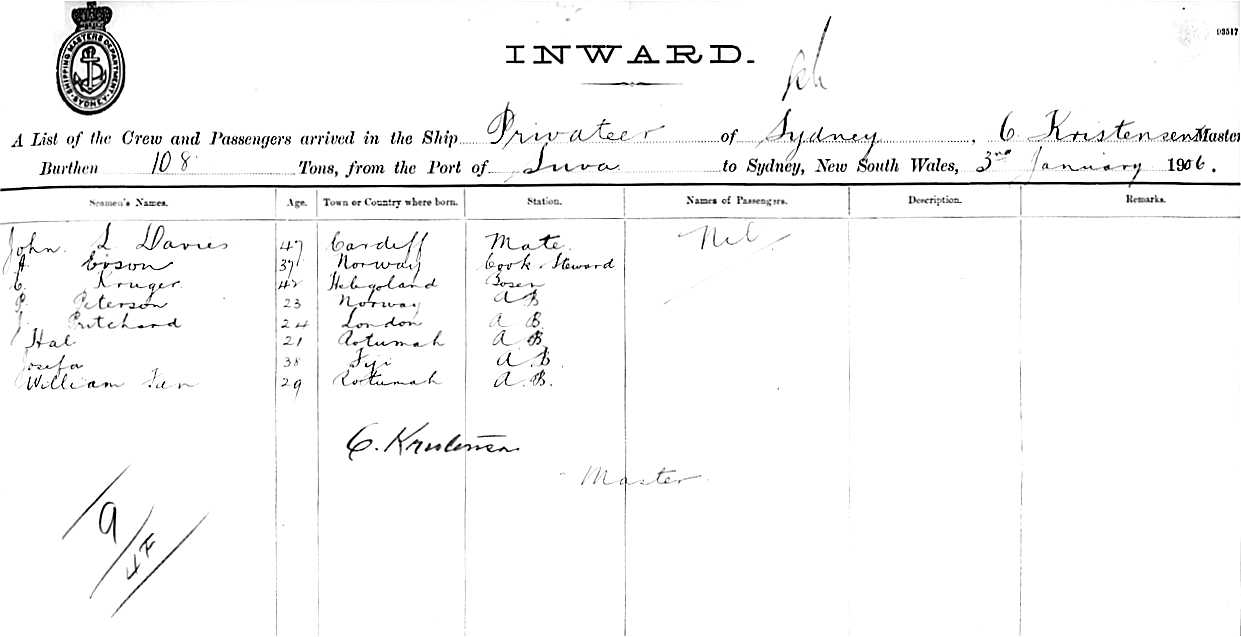 SHIPPING MASTERS DEPARTMENT SYDNEY
03517
INWARD.
A List of the Crew and Passengers arrived in the Ship Privateer of Sydney, C Kristensen Master
Burthen 108 Tons, from the Port of Suva to Sydney, New South Wales, 3rd January 1906.
Seamen's Names. Age. Town or Country where born. Station. Names of Passengers. Description. Remarks.
John. L Davies 47 Cardiff Mate Nil
A 37 Norway Cook & Steward
C. Kruger 42 Heligoland Bosen
P. Peterson 23 Norway A B
J. Pritchard 24 London A B.
Hal 21 Rotumah A B.
Josefa 38 Fiji A. B.
William 29 Rotumah A. B.
C. Kristensen
Master
9